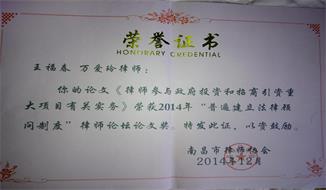 荣誉证书
HONORARY CREDENTIAL
王福春 万爱玲律师：
你的论文《律师参与政府投资和招商引资重
大项目有关实务》荣获2014年“普遍建立法律顾
问制度”律师论坛论文奖。特发此证，以资鼓励。
南昌市律师协会
2014年12月